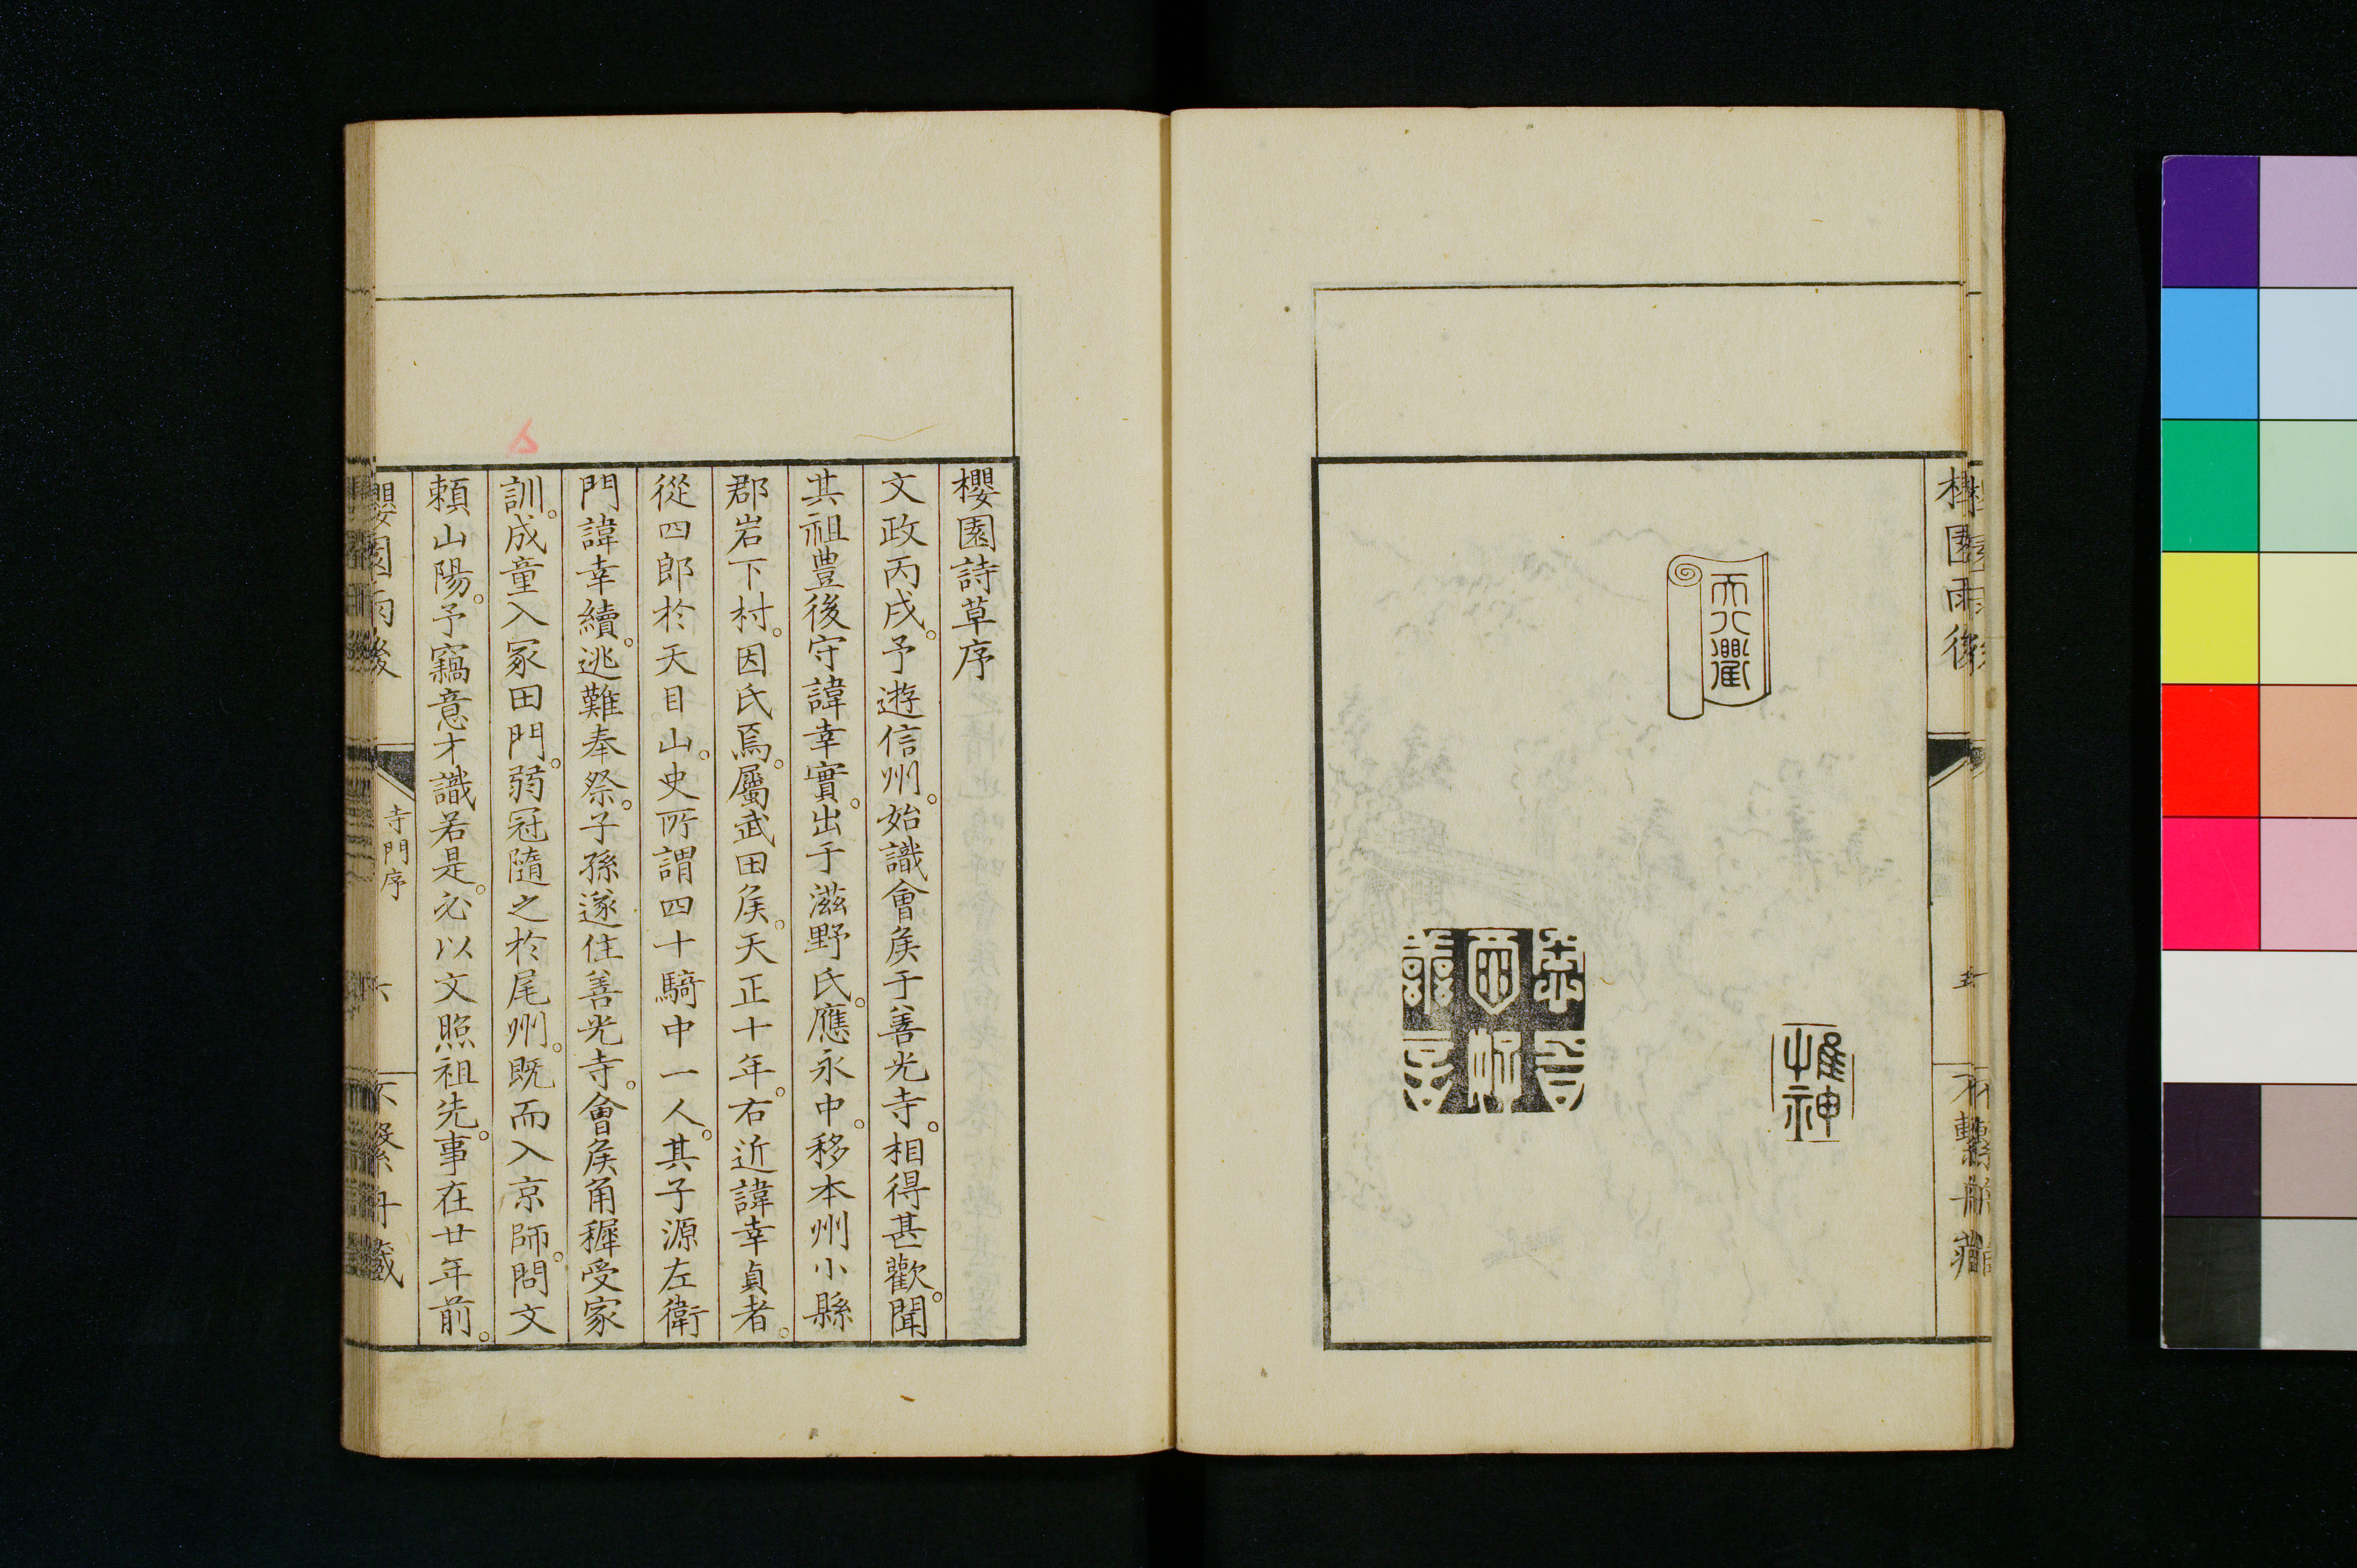 櫻園雨後
五
天行衢
櫻園詩草序
文政丙戌。予遊信州。始識會矦于善光寺。相得甚歡。聞
其祖豊後守諱幸實。出于滋野氏。應永中。移本州小縣
郡岩下村。因氏焉。屬武田矦。天正十年。右近諱幸貞者。
從四郎於天目山。史所謂四十騎中一人。其子源左衛
門諱幸續。逃難奉祭。子孫遂住善光寺。會矦角穉受家
訓。成童入冢田門。弱冠隨之於尾州。既而入京師。問文
頼山陽。予竊意才識若是。必以文照祖先。事在廿年前。
櫻園雨後
寺門序
六